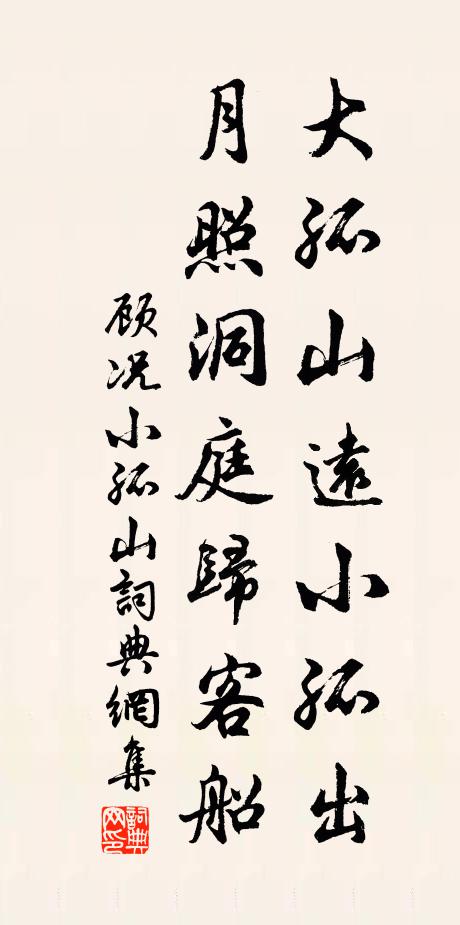 大孤山遠小孤出
月照洞庭歸客船
顾况小孤山詞典網集
詞典网印